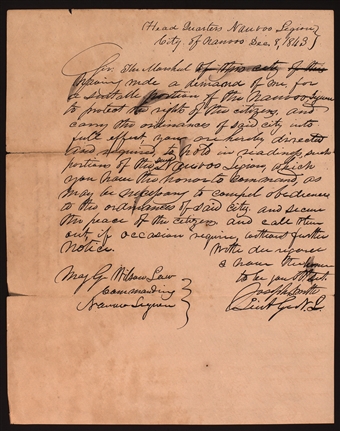 Head Quarters Nauvoo Legion
City of Nauvoo Dec. 8, 1843
Sir, The Marshal of this city of
having made a demand of me for
a suitable portion of the Nauvoo Legion
to protect the rights of the citizens, and
carry the ordinances of said city into
full effect, you are hereby directed
and required to hold in readiness, such
portions of the said Nauvoo Legion, which
you have the honor to command, as
may be necessary to compel obedience
to the ordinances of said City and secure
the peace of the citizens and call them
out if occasion require, without further
notice.
With due regard
I have the honor
to be your
Joseph Smith
Lieut. G. N. L.
Maj. G. Wilson Law
Commanding
Nauvoo Legion